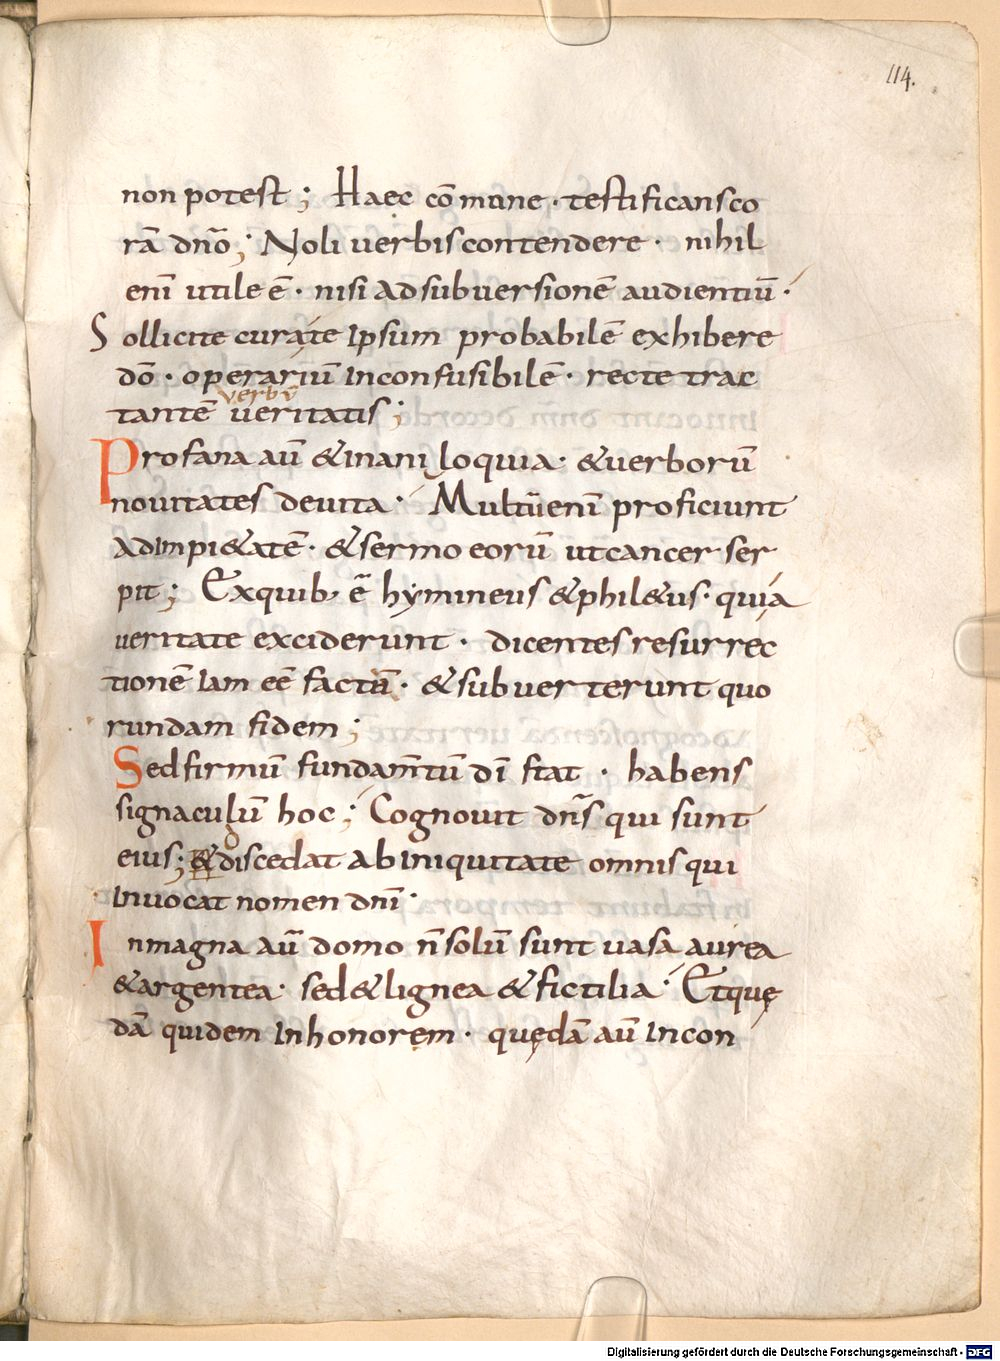 114.
non potest; Haec cōmune · testificans co
rā dn̄o; Noli uerbis contendere · nihil
enī utile ē · nisi ad subuersionē audientiū ·
Sollicite curate ipsum probabilē exhibere
dō · operariū inconfusibilē · recte trac
verbū
tantē ueritatis;
Profana aū & inaniloquia · & uerborū
nouitates deuita · Multū enī proficiunt
ad impi&atē · & sermo eorū ut cancer ser
pit; Ex quib, ē hymineus & phil&us · quia
ueritate exciderunt · dicentes resurrec
tionē iam eē factā · & subuerterunt quo
rundam fidem;
Sed firmū fundam̄tū dī stat · habens
signaculū hoc; Cognouit dn̄s qui sunt
eius; & discedat ab iniquitate omnis qui
inuocat nomen dn̄i ·
In magna aū domo n̄ solū sunt uasa aurea
& argentea · sed & lignea & fictilia · Et quę
dā quidem in honorem · quędā aū in con
Digitalisierung gefördert durch die Deutsche Forschungsgemeinschaft - DFG